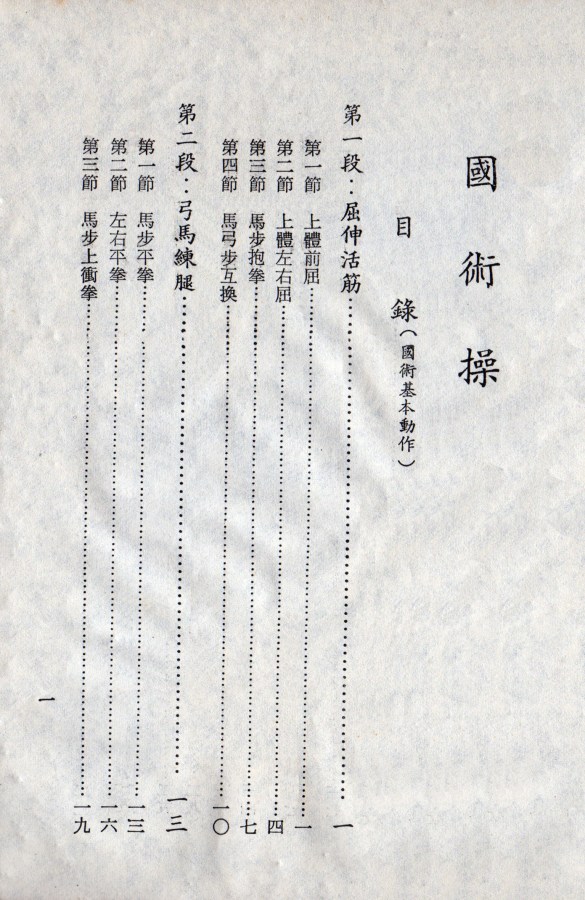 國術操
目錄（國術基本動作）
第一段：屈伸活筋……………………一
第一節 上體前屈……………………一
第二節 上體左右屈……………………四
第三節 馬步抱拳……………………七
第四節 馬弓步互換……………………一〇
第二段：弓馬練腿……………………一三
第一節 馬步平拳……………………一三
第二節 左右平拳……………………一六
第三節 馬步上衝拳……………………一九
一